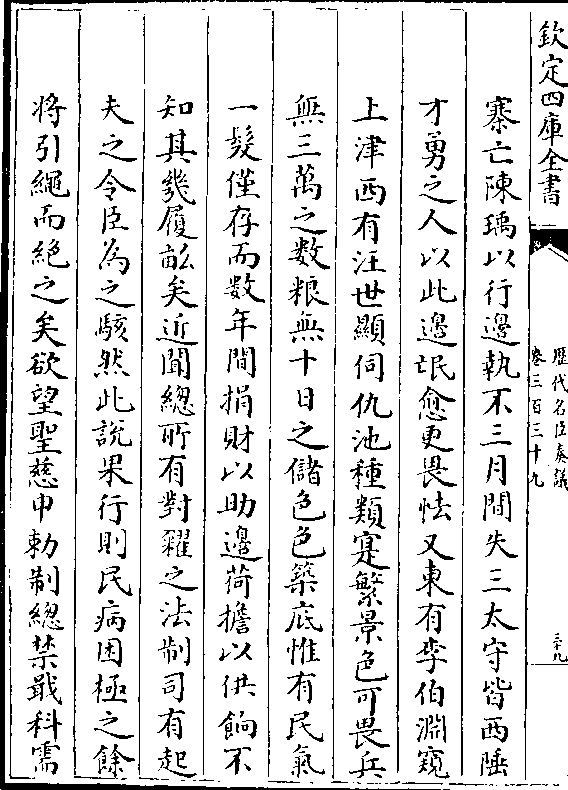 欽定四庫全書
歴代名臣奏議
卷三百三十九
三十九
寨亡陳瑀以行邊執不三月間失三太守皆西陲
才勇之人以此邊氓愈更畏怯又東有李伯淵窺
上津西有汪世顯伺仇池種類寔繁景色可畏兵
無三萬之數粮無十日之儲色色築底惟有民氣
一髮僅存而數年間捐財以助邊荷擔以供餉不
知其幾履畝矣近聞總所有對糴之法制司有起
夫之令臣為之駭然此說果行則民病困極之餘
將引繩而絕之矣欲望聖慈申勅制總禁戢科需